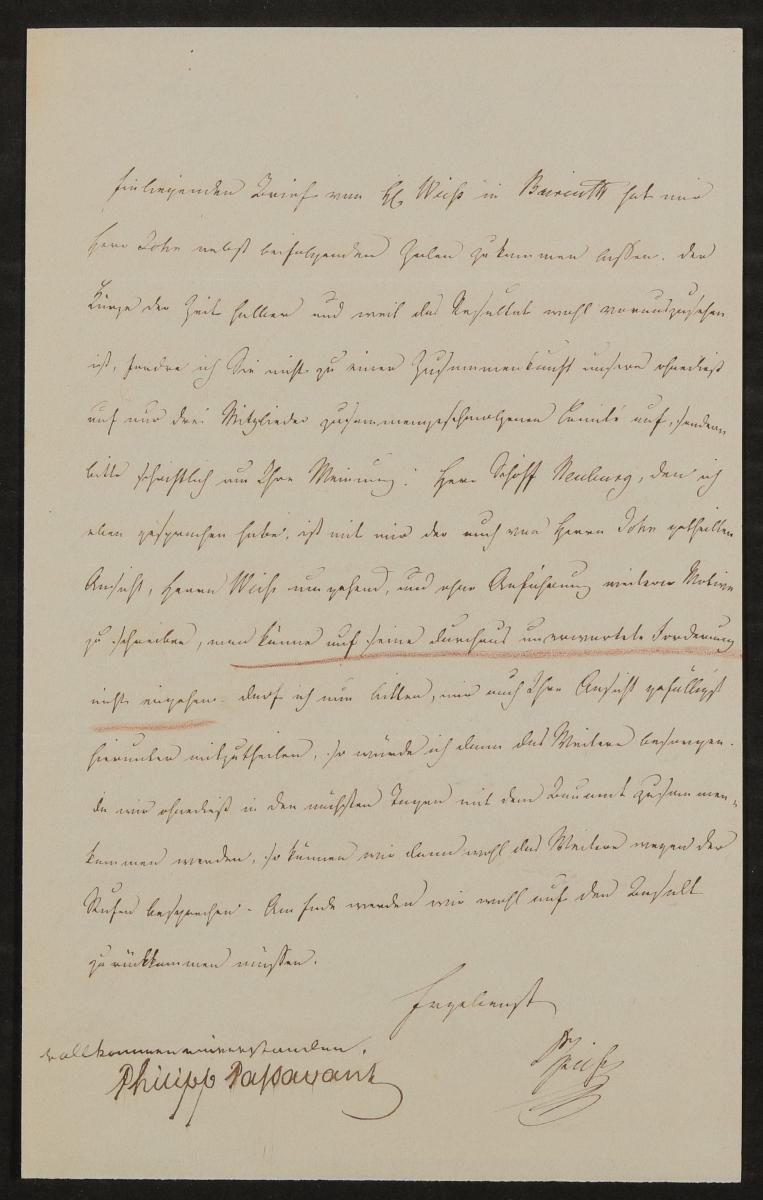 Einliegenden Brief von H. Weiß in Baireuth hat mir
Herr John nebst beifolgenden Zeilen zukommen lassen. Der
Kürze der Zeit halber und weil das Resultat wohl vorauszusehen
ist, fordre ich Sie nicht zu einer Zusammenkunft unsere ohnedieß
auf nur drei Mitglieder zusammengeschmolzenen Comité auf, sondern
bitte schriftlich um Ihre Meinung: Herr Schöff Neuburg, den ich
eben gesprochen habe, ist mit mir der auch von Herrn John getheilten
Ansicht, Herrn Weiß umgehend, und ohne Anführung weiterer Motive
zu schreiben, man könne auf seine durchaus unerwartete Forderung
nicht eingehen. Darf ich nun bitten, mir auch Ihre Ansicht gefälligst
hierunter mitzutheilen, so würde ich dann das Weitere besorgen.
Da wir ohnedieß in den nächsten Tagen mit dem Bauamt zusammen-
kommen werden, so können wir dann wohl das Weitere wegen der
Stufen besprechen. Am Ende werden wir wohl auf den Basalt
zurückkommen müssen.
Ergebenst
vollkommen einverstanden.
Philipp Passavant